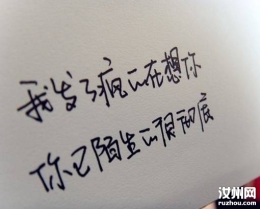 我发了疯的在想你
你已陌生的
汝州网
ruzhou.com